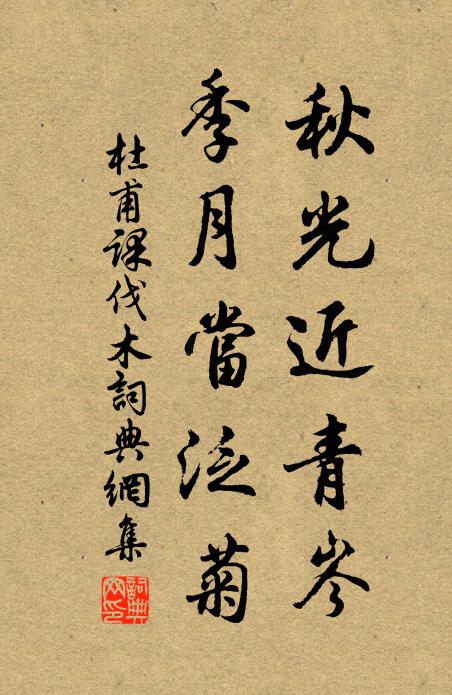 秋光近青岑
季月當泛菊
杜甫課伐木詞典網集
詞典网印